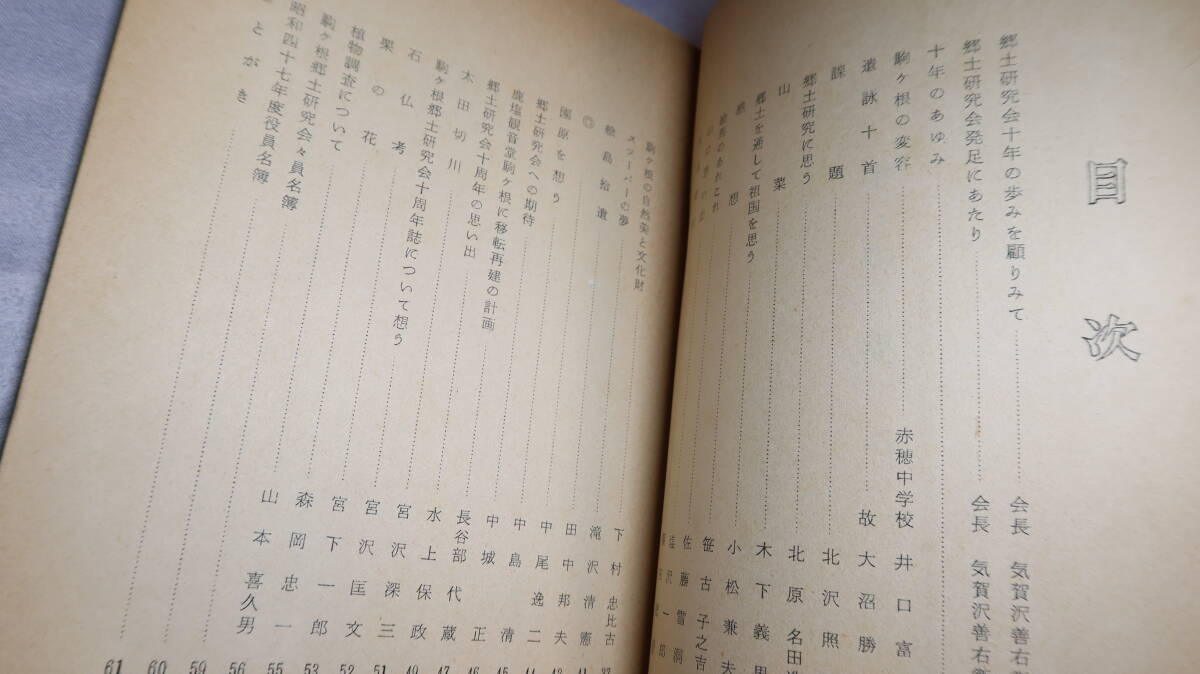 目次
郷土研究会十年の歩みを顧りみて 会長 気賀沢善右
郷土研究会発足にあたり 会長 気賀沢善右
十年のあゆみ
駒ヶ根の変容 赤穂中学校 井口富
遺詠十首 故 大沼勝
課題 北沢照
郷土研究に思う 北原名田
山菜 木下義
郷土を通して祖国を思う 小松兼夫
想 笹古子之吉
佐藤雪洞
沢一郎
駒ヶ根の自然美と文化財 下村忠比古
メッーバーの夢 滝沢清憲
絵島拾遺 田中邦夫
◎
園原を想う 中尾逸二
郷土研究会への期待 中島清
鹿塩観音堂駒ヶ根に移転再建の計画 中城正
郷土研究会十周年の思い出 長谷部代蔵
太田切川 水上保政
駒ヶ根郷土研究会十周年誌について想う 宮沢深三
石仏考 宮沢匡文
栗の花 宮下一郎
植物調査について 森岡忠一
駒ヶ根郷土研究会々員名簿 山本喜久男
昭和四十七年度役員名簿
とがき
45
46
47
49
51
52
53
55
56
59
60
61